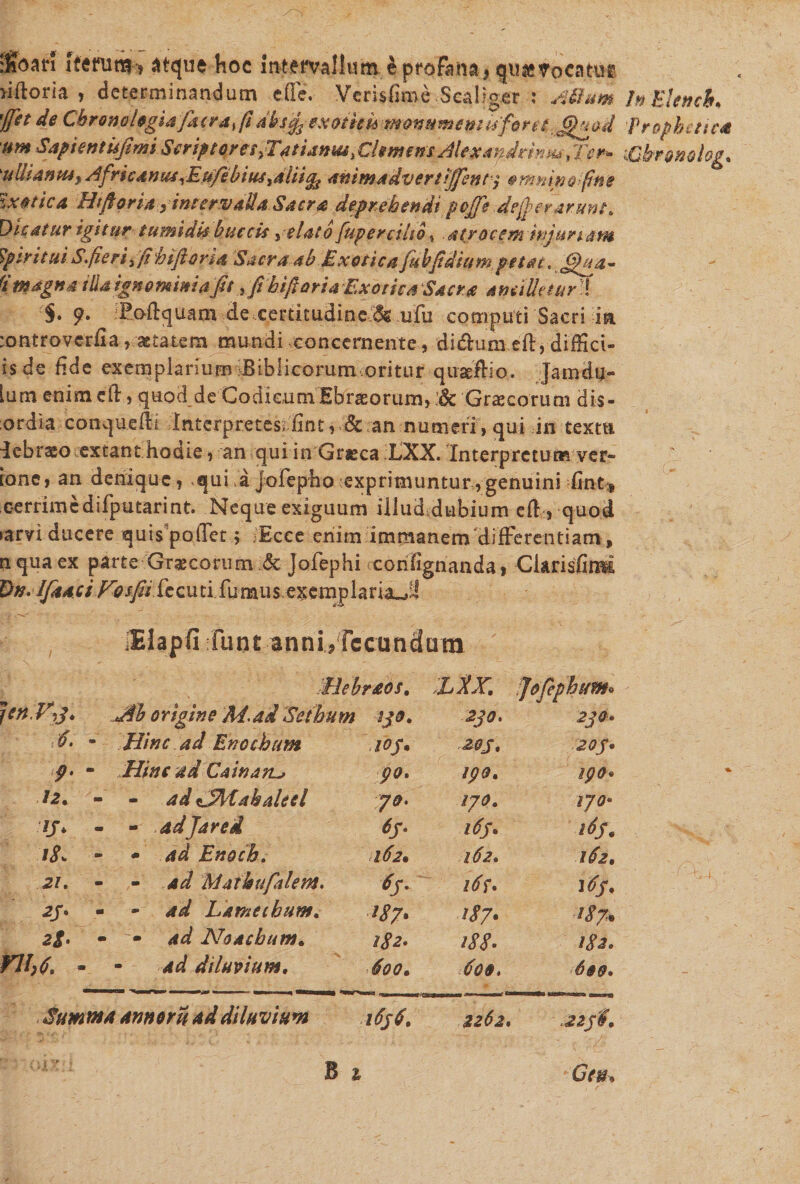 oari iterum, atque hoc intervallum è profana, quæ vocatur
iſtoria, determinandum eſſe. Verisſimè Scaliger: Actum In Elench.
ſſet de Chronologia ſacra, ſi absq; exoticis monumentis foret. Quod Prophetica
um Sapientiſſimi Scriptores, Tatianus, Clemens Alexandrinus, Ter- Chronolog.
ullianus, Africanus, Euſebius, aliiq; animadvertiſſent; omnino ſine
xotica Hiſtoria, intervalla Sacra deprehendi poſſe deſperarunt.
Dicatur igitur tumidis buccis, elato ſupercilio, atrocem injuriam
Spiritui S. fieri, ſi hiſtoria Sacra ab Exotica ſubſidium petat. Qua-
ſi magna illa ignominia ſit, ſi hiſtoria Exotica Sacræ ancilletur!
§. 9. Poſtquam de certitudine & uſu computi Sacri in
controverſia, ætatem mundi concernente, dictum eſt, diffici-
is de fide exemplarium Biblicorum oritur quæſtio. Jamdu-
lum enim eſt, quod de Codicum Ebræorum, & Græcorum dis-
cordia conqueſti Interpretes ſint, & an numeri, qui in textu
Hebræo extant hodie, an qui in Græca LXX. Interpretum ver-
ione, an denique, qui à Joſepho exprimuntur, genuini ſint,
cerrimè diſputarint. Neque exiguum illud dubium eſt, quod
arvi ducere quis poſſet; Ecce enim immanem differentiam,
n qua ex parte Græcorum & Joſephi conſignanda, Clarisſimi
Dn. Iſaaci Vosſii ſecuti fumus exemplaria.
Elapſi ſunt anni, ſecundum
Hebræos. LXX. Joſephum.
Gen. V,3. Ab origine M. ad Sethum 130. 230. 230.
6. - Hinc ad Enochum 105. 205. 205.
9. - Hinc ad Cainan 90. 190. 190.
12. - - ad Mahaleel 70. 170. 170.
15. - - ad Jared 65. 165. 165.
18. - - ad Enoch. 162. 162. 162.
21. - - ad Mathuſalem. 65. 165. 165.
25. - - ad Lamechum. 187. 187. 187.
28. - - ad Noachum. 182. 188. 182.
VII,6. - - ad diluvium. 600. 600. 600.
Summa annorũ ad diluvium 1656. 2262. 2256.
B 2 Gen.